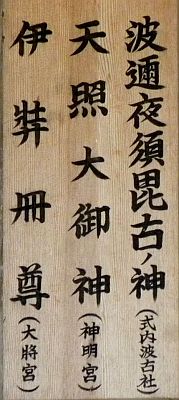 波邇夜須毘古ノ神(式内波古社)
天照大御神(神明宮)
伊弉冊尊(大將宮)